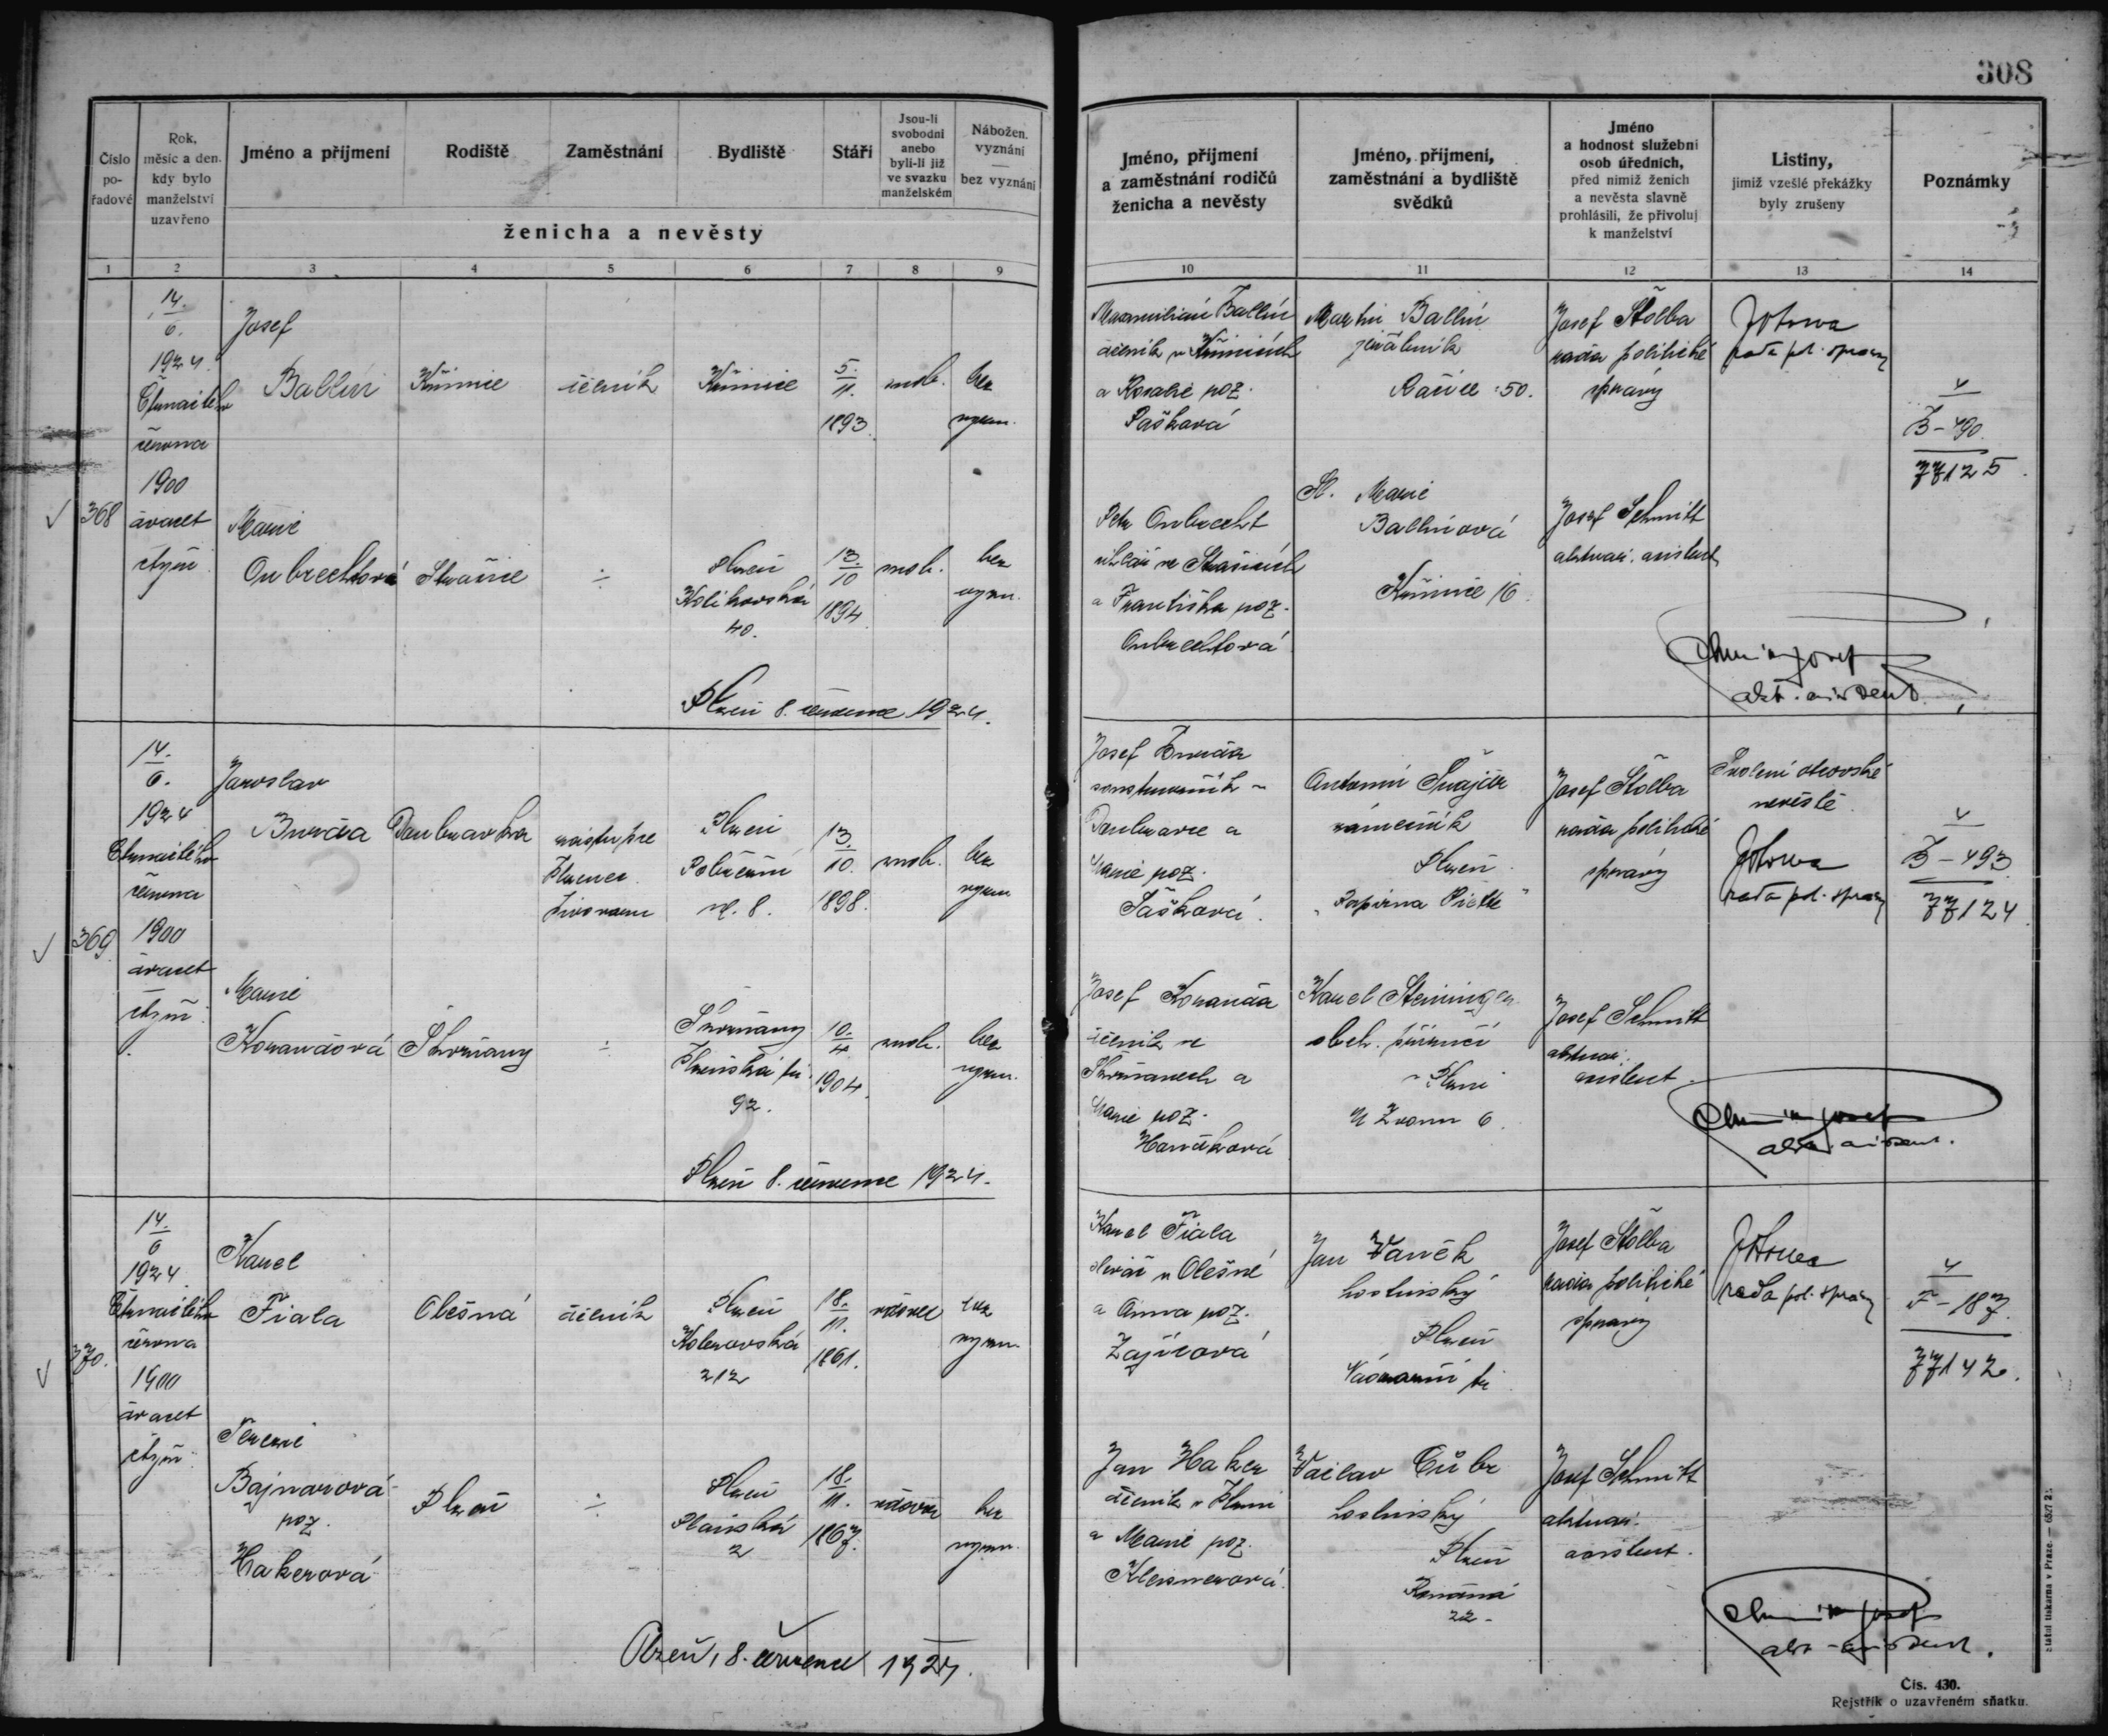 308
Číslo
po-
řadové
Rok,
měsíc a den,
kdy bylo
manželství
uzavřeno
Jméno a příjmení
Rodiště
Zaměstnání
Bydliště
Stáří
Jsou-li
svobodni
anebo
byli-li již
ve svazku
manželském
Nábožen.
vyznání
bez vyznání
ženicha a nevěsty
Jméno, příjmení
a zaměstnání rodičů
ženicha a nevěsty
Jméno, příjmení,
zaměstnání a bydliště
svědků
Jméno
a hodnost služební
osob úředních,
před nimiž ženich
a nevěsta slavně
prohlásili, že přivolují
k manželství
Listiny,
jimiž vzešlé překážky
byly zrušeny
Poznámky
1 2 3 4 5 6 7 8 9 10 11 12 13 14
368
14.
6.
1924
čtrnáctého
června
1900
dvacet
čtyři
Josef
Ballín
Kšimice
dělník
Kšimice
5.
11.
1893
svob.
bez
vyzn.
Maxmilián Ballín
dělník v Kšimicích
a Rosalie roz.
Pašková
Martin Ballín
50.
Josef Stolba
rada politické
správy
rada pol. správy
B-490
77125
Marie
Onbrechtová
Plzeň
40.
13.
10
1894
svob.
bez
vyzn.
Petr Onbrecht
a Františka roz.
Onbrechtová
Marie
Ballínová
Kšimice 16
Josef Schmitt
aktuár. asistent
Plzeň 8. července 1924.
369
14.
6.
1924
čtrnáctého
června
1900
dvacet
čtyři
Jaroslav
Burda
Doubravka
Plzeň
Pobřežní
ul. 8.
13.
10.
1898.
svob.
bez
vyzn.
Josef Burda
Doubravce a
Marie roz.
Tašková.
Antonín Švajcr
zámečník
Plzeň
"Papírna Piette"
Josef Stolba
rada politické
správy
Svolení otcovské
nevěstě.
rada pol. správy
B-493
77124
Marie
Korandová
Skvrňany
Skvrňany
Plzeňská tř.
92.
10.
4.
1904.
svob.
bez
vyzn.
Josef Koranda
dělník ve
Skvrňanech a
Marie roz.
Hanáková
Karel Steininger
obch. příručí
v Plzni
U Zvonu 6.
Josef Schmitt
aktuár.
asistent.
Plzeň 8. července 1924.
370.
14.
6
1924
čtrnáctého
června
1900
dvacet
čtyři
Karel
Fiala
Olešná
dělník
Plzeň
Koterovská
212
18.
11.
1861.
vdovec
bez
vyzn.
Karel Fiala
v Olešné
a Anna roz.
Zajícová
Jan Vaněk
hostinský
Plzeň
Nádražní tř.
Josef Stolba
rada politické
správy
rada pol. správy
F-187.
77142.
Terezie
Bajnarová
roz.
Hakerová
Plzeň
Plzeň
Plaňská
2
18.
11.
1867.
vdova
bez
vyzn.
Jan Haker
dělník v Plzni
a Marie roz.
Kleisnerová.
Václav Cübr
hostinský
Plzeň
22-
Josef Schmitt
aktuár.
asistent.
Plzeň, 8. července 1924.
Státní tiskárna v Praze. — 6527 2.
Čís. 430.
Rejstřík o uzavřeném sňatku.